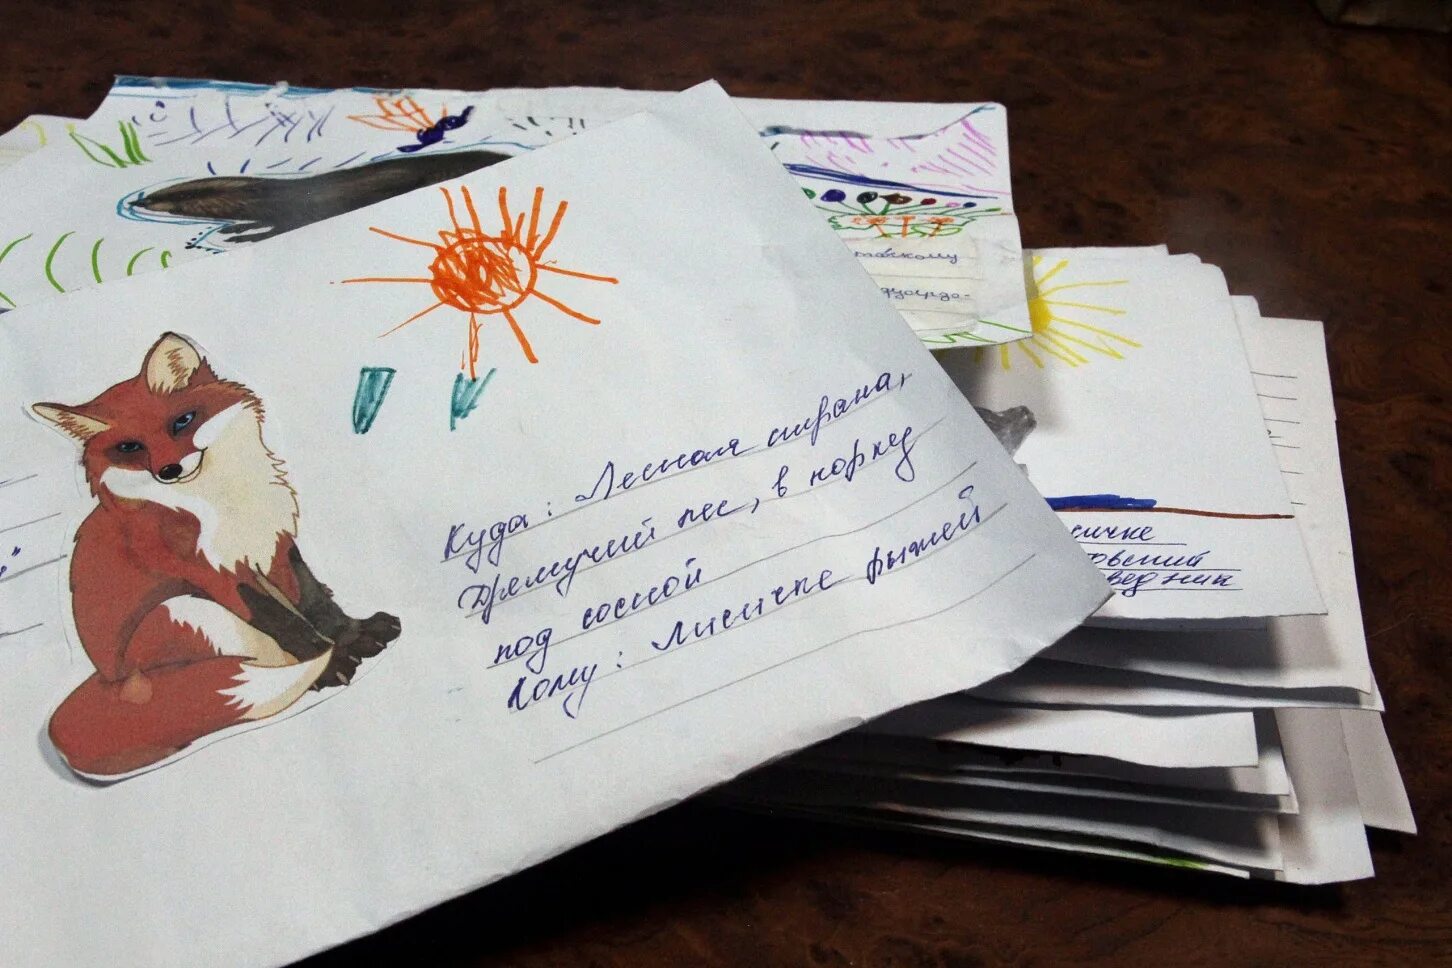 Куда: Лесная страна,
Дремучий лес, в норке
под сосной
Кому: Лисичке рыжей
сичке
овский
ведник